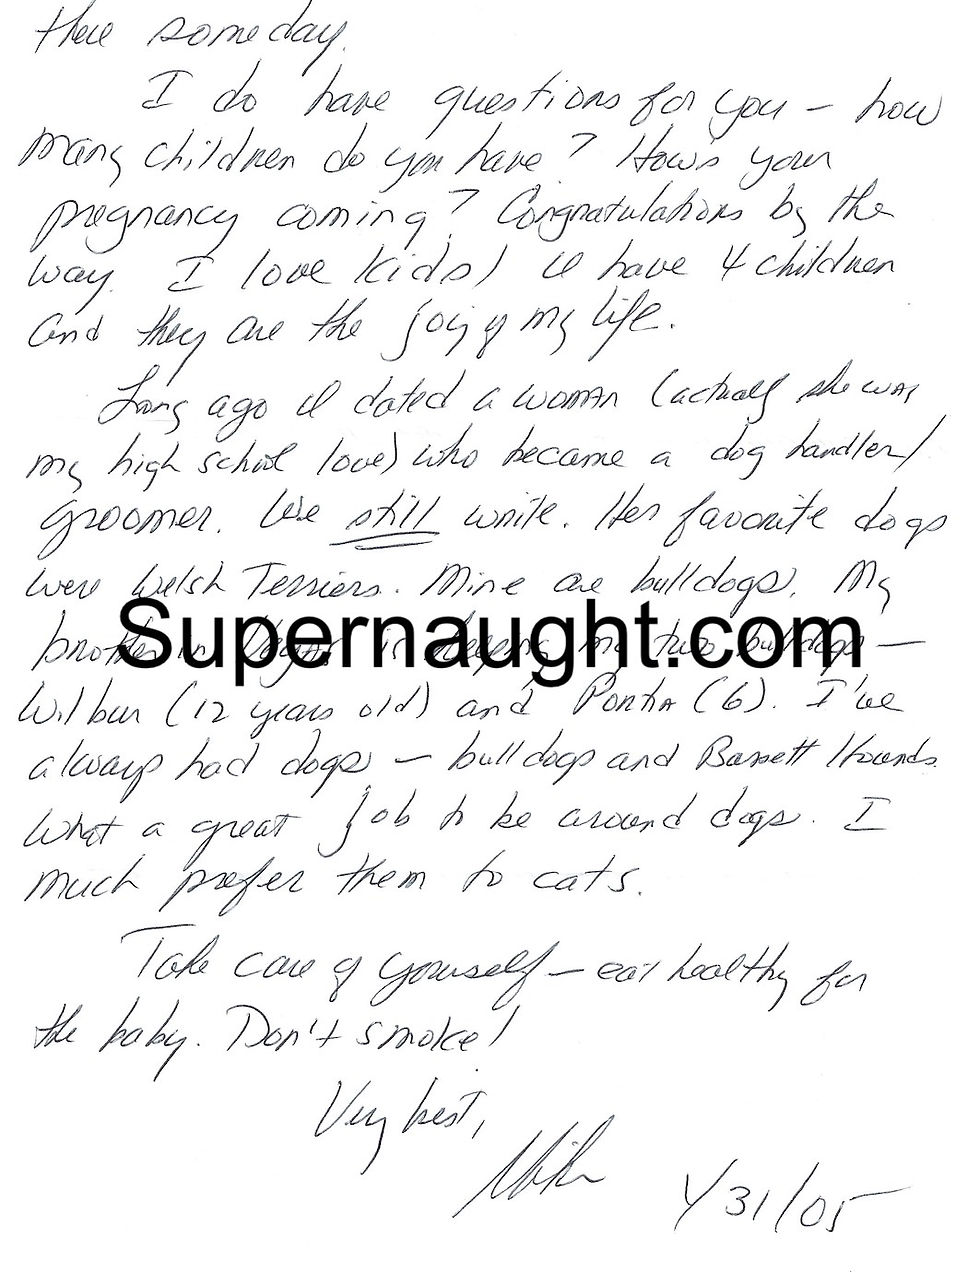 there someday.
I do have questions for you – how
many children do you have? How's your
pregnancy coming? Congratulations by the
way. I love kids! I have 4 children
and they are the joy of my life.
Long ago I dated a woman (actually she was
my high school love) who became a dog handler/
groomer. We still write. Her favorite dogs
were Welsh Terriers. Mine are bulldogs. My
brother in is keeping my two bulldogs –
Supernaught.com
Wilbur (12 years old) and Portia (6). I've
always had dogs – bulldogs and Bassett Hounds.
What a great job to be around dogs. I
much prefer them to cats.
Take care of yourself – eat healthy for
the baby. Don't smoke!
Very best,
Mike 1/31/05